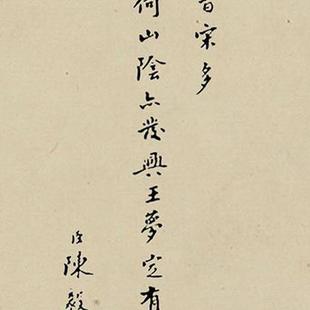 宋多
何山陰亦發興王夢定有
陳毅